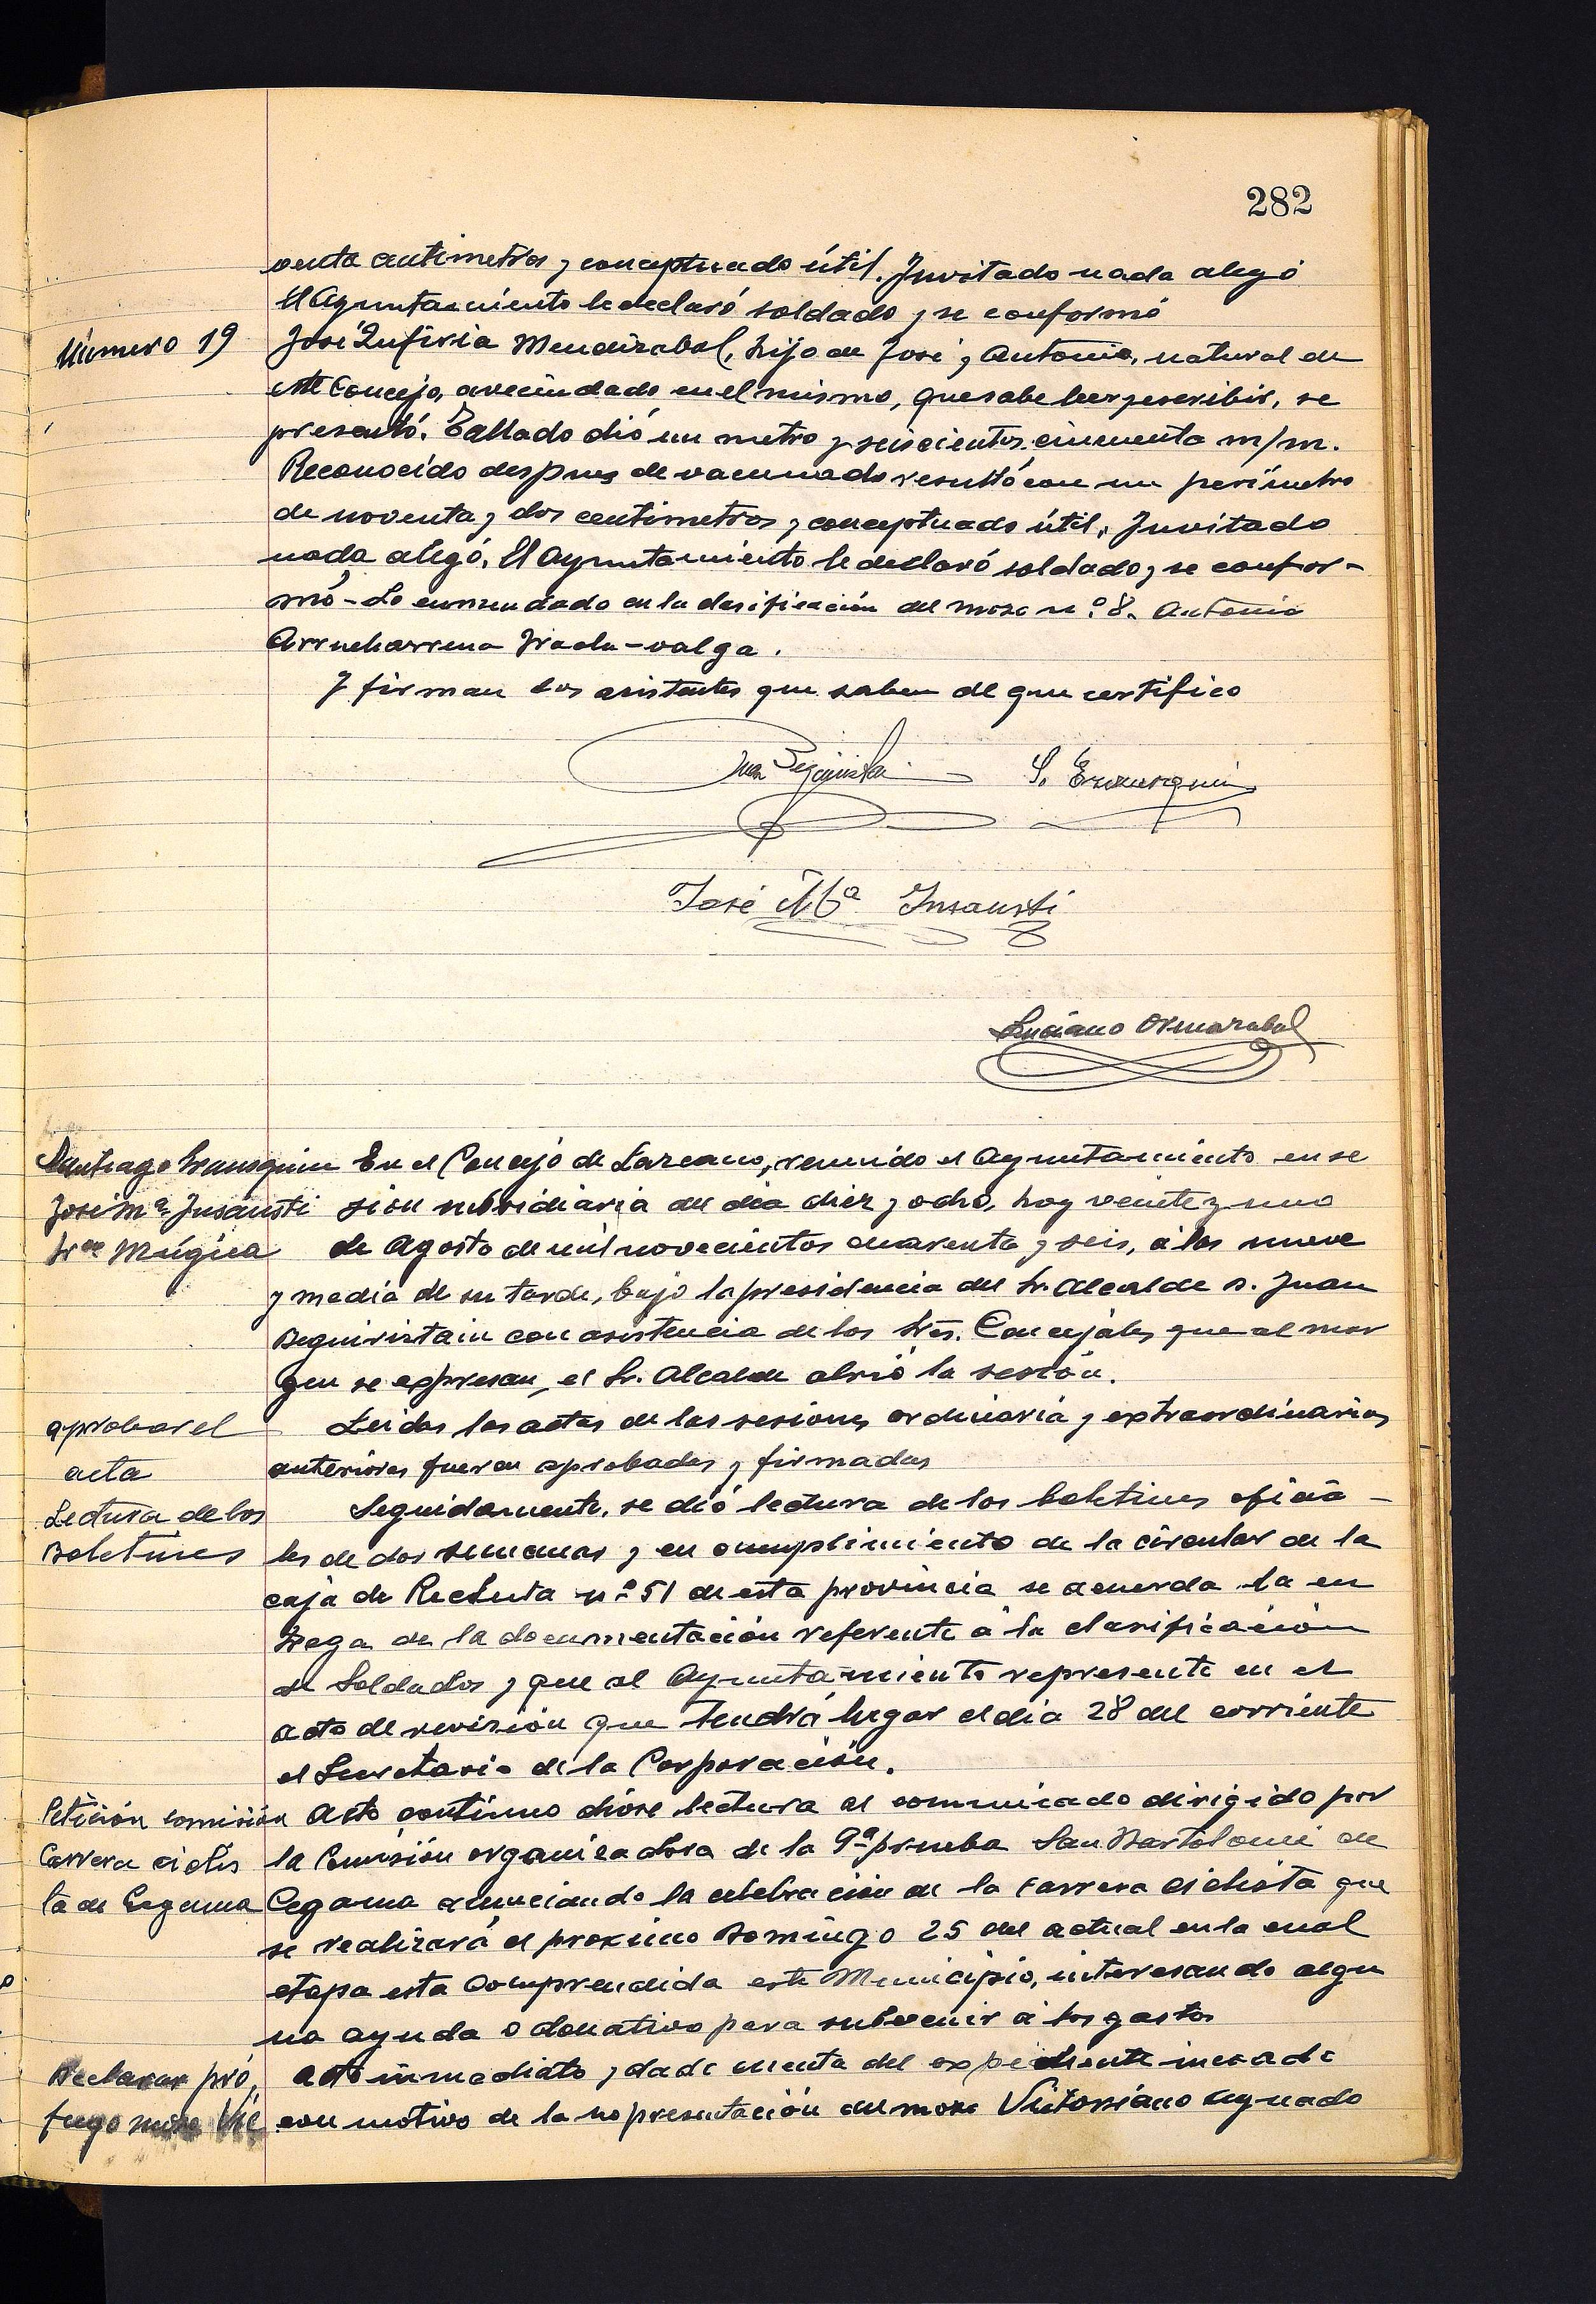 282
venta centimetros y conceptuado útil. Invitado nada alegó
El Ayuntamiento le declaró soldado y se conformó
Número 19
José Mendizabal, hijo de José y Antonia, natural de
este Concejo, avecindado en el mismo, que sabe leer y escribir, se
presentó. Tallado dió un metro y seiscientos cincuenta m/m.
Reconocido despues de vacunado resultó con un perímetro
de noventa y dos centimetros y conceptuado útil. Invitado
nada alegó. El Ayuntamiento le declaró soldado y se confor-
mó - Lo enmendado en la clasificación del mozo nº 8. Antonio
Arruebarrena - valga.
Y firman los asistentes que saben de que certifico
Juan Beguiristain
S. Ezcurquin
José Mª Insausti
Luciano Ormazabal
Santiago
José Mª Insausti
Múgica
En el Concejo de Lazcano, reunido el Ayuntamiento en se
sión subsidiaria del dia diez y ocho, hoy veinte y uno
de Agosto de mil novecientos cuarenta y seis, á las nueve
y media de su tarde, bajo la presidencia del Sr. Alcalde D. Juan
Beguiristain con asistencia de los Sres. Concejales que al mar
gen se expresan, el Sr. Alcalde abrió la sesión.
aprobar el
acta
Leidas las actas de las sesiones ordinaria y extraordinarias
anteriores fueron aprobadas y firmadas
Lectura de los
Boletines
Seguidamente, se dió lectura de los boletines oficia-
les de dos semanas y en cumplimiento de la circular de la
caja de Recluta nº 51 de esta provincia se acuerda la en
trega de la documentación referente á la clasificación
de Soldados y que al Ayuntamiento represente en el
acto de revisión que tendrá lugar el día 28 del corriente
el Secretario de la Corporación.
Petición comisión
Carrera ciclis
ta de Cegama
Acto continuo dióse lectura al comunicado dirigido por
la Comisión organizadora de la 9ª prueba San Bartolomé de
Cegama anunciando la celebración de la carrera ciclista que
se realizará el proximo Domingo 25 del actual en la cual
etapa esta comprendida este Municipio, interesando algu
na ayuda o donativo para subvenir á los gastos
Declarar pró,
fugo mozo Vic
Acto inmediato y dada cuenta del expediente incoado
con motivo de la no presentación del mozo Victoriano Aguado